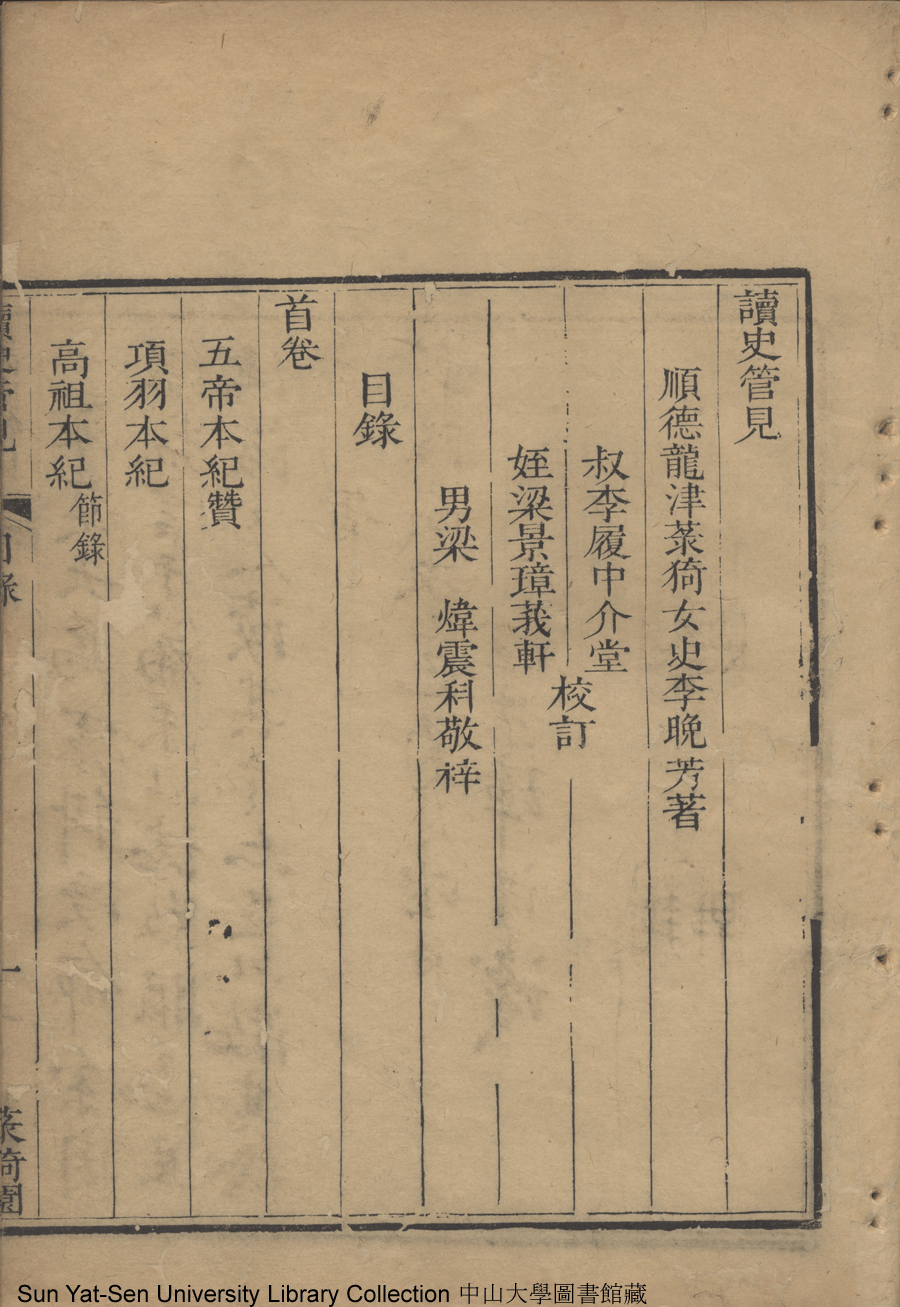 讀史管見
順德龍津菉猗女史李晚芳著
叔李履中介堂
姪梁景璋莪軒
校訂
男梁 煒震科敬梓
目錄
首卷
五帝本紀贊
項羽本紀
高祖本紀 節錄
讀史管見 目錄 一 菉猗園
Sun Yat-Sen University Library Collection 中山大學圖書館藏